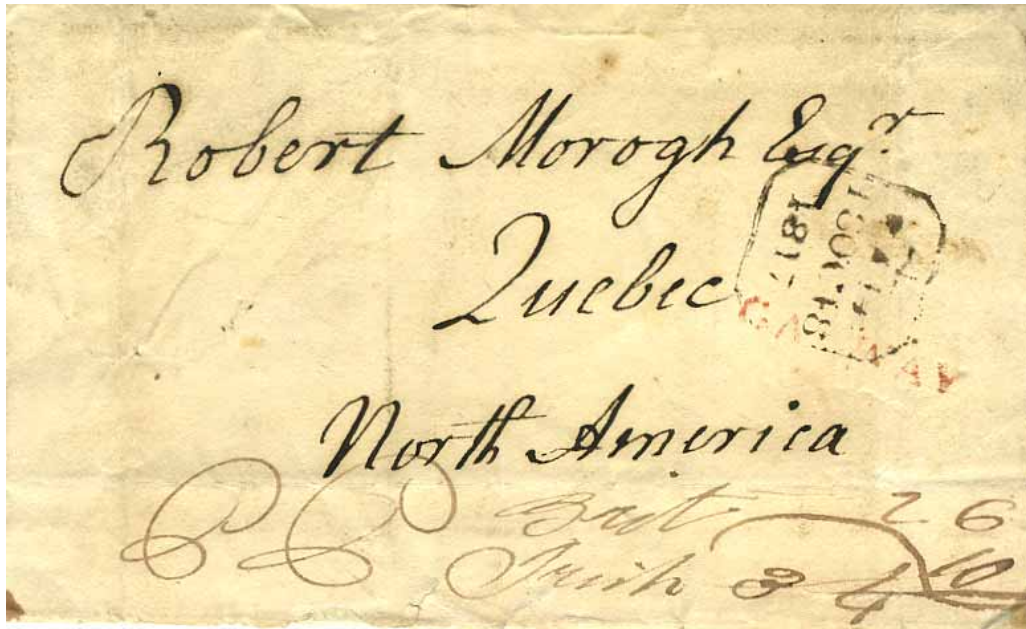 Robert Morogh Esqr.
Quebec
North America
1817
GALWAY
Brit. 2 6
Irish 3 4 10